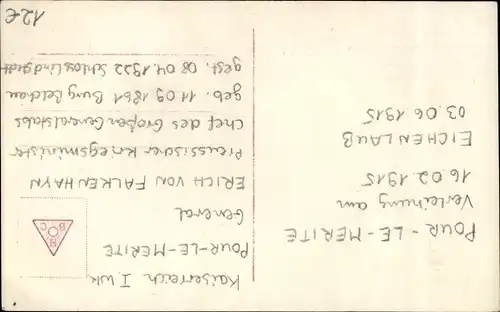 Kaiserreich I. WK
POUR-LE-MERITE
General
ERICH VON FALKENHAYN
Preussischer Kriegsminister
Chef des Großen Generalstabs
geb. 11.09.1861 Burg Belchau
gest. 08.04.1922 Schloss Lindstedt
POUR-LE-MERITE
Verleihung am
16.02.1915
EICHENLAUB
03.06.1915
12€